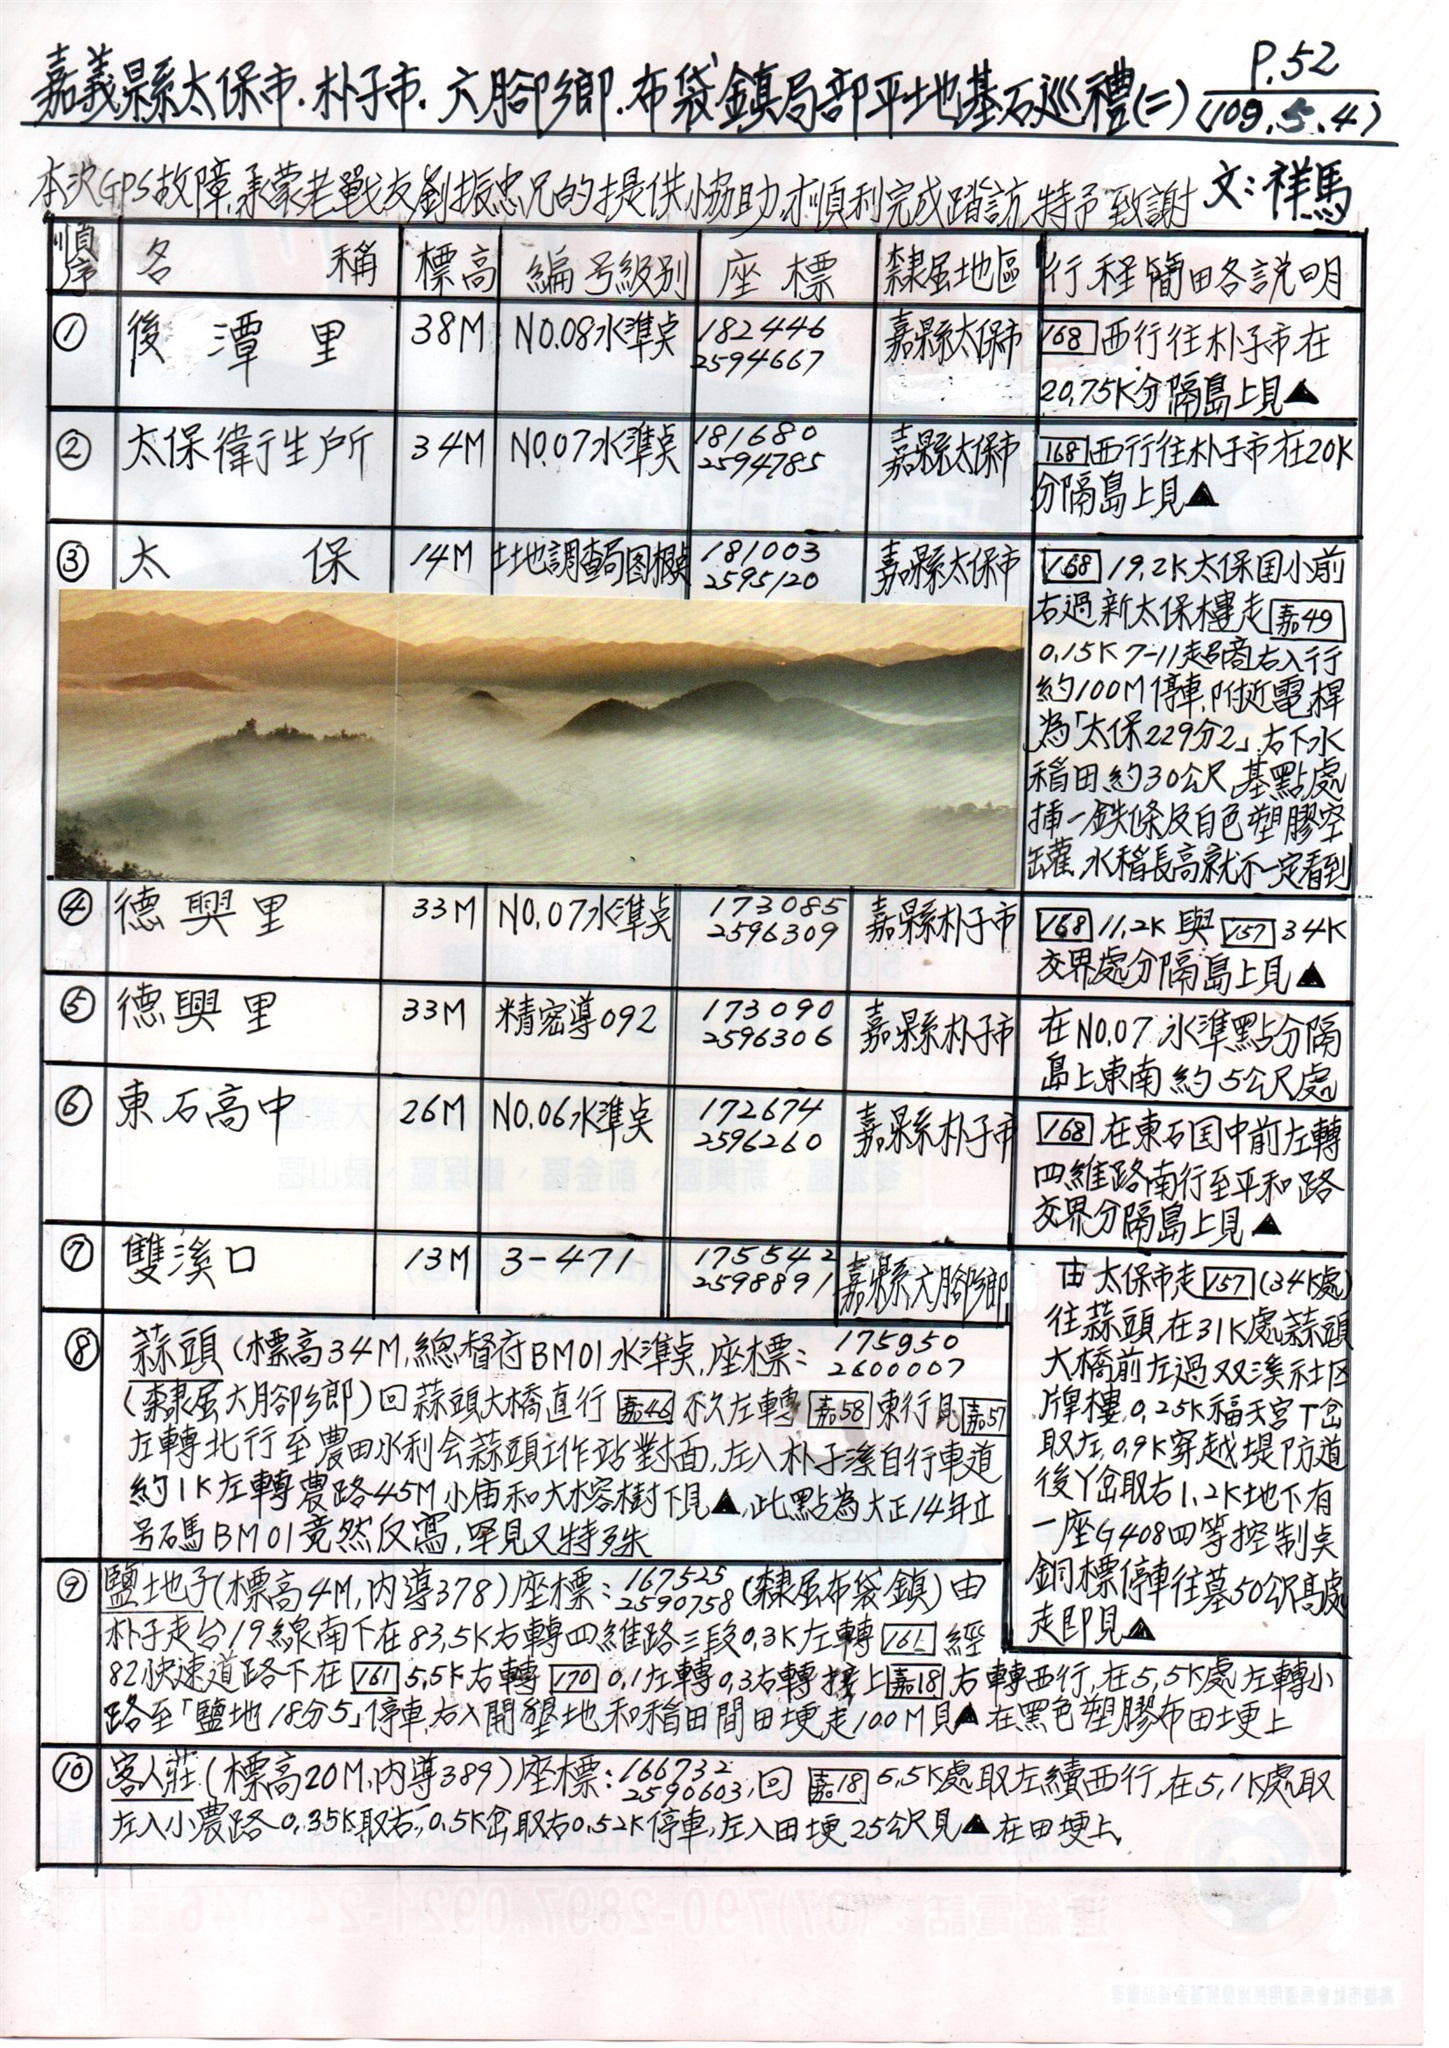 嘉義縣太保市.朴子市.六腳鄉.布袋鎮局部平地基石巡禮(二)
P.52
(109.5.4)
本次GPS故障,承蒙老戰友劉振忠兄的提供協助,才順利完成踏訪,特予致謝 文:祥馬
順序 名稱 標高 編号級別 座標 隸屬地區 行程簡略說明
① 後潭里 38M NO.08水準点 182446 嘉縣太保市 168西行往朴子市在
2594667
20.75K分隔島上見▲
② 太保衛生所 34M NO.07水準点 181680 嘉縣太保市 168西行往朴子市在20K
2594785
分隔島上見▲
③ 太保 14M 土地調查局图根点 181003 嘉縣太保市 168 19.2K太保国小前
2595120
右過新太保樓走嘉49
0.15K 7-11超商右入行
約100M停車,附近電桿
為「太保229分2」右下水
稻田約30公尺,基點處
插一鉄條及白色塑膠空
罐,水稻長高就不一定看到
④ 德興里 33M NO.07水準点 173085 嘉縣朴子市 168 11.2K與157 34K
2596309
交界處分隔島上見▲
⑤ 德興里 33M 精密導092 173090 嘉縣朴子市 在NO.07水準點分隔
2596306
島上東南約5公尺處
⑥ 東石高中 26M NO.06水準点 172674 嘉縣朴子市 168在東石国中前左轉
2596260
四維路南行至平和路
交界分隔島上見▲
⑦ 雙溪口 13M 3-471 175542 嘉縣六腳鄉
2598891
由太保市走157(34K處)
往蒜頭,在31K處蒜頭
大橋前左過双溪社区
牌樓,0.25K福天宮丁岔
取左,0.9K穿越堤防道
後丫岔取右1.2K地下有
一座G408四等控制点
銅標停車往墓50公尺高處
走即見▲
⑧ 蒜頭(標高34M,總督府BM01水準点,座標:175950
2600007
(隸屬六腳鄉)回蒜頭大橋直行嘉46不久左轉嘉58東行見嘉57
左轉北行至農田水利会蒜頭工作站對面,左入朴子溪自行車道
約1K左轉農路45M小庙和大榕樹下見▲,此點為大正14年立
号碼BM01竟然反寫,罕見又特殊
⑨ 鹽地子(標高4M,内導378)座標:167525
2590758(隸屬布袋鎮)由
朴子走台19線南下在83.5K右轉四維路三段0.3K左轉161經
82快速道路下在161 5.5K右轉170 0.1左轉0.3右轉接上嘉18右轉西行,在5.5K處左轉小
路至「鹽地18分5」停車,右入開墾地和稻田間田埂走100M見▲在黑色塑膠布田埂上
⑩ 客人莊(標高20M,内導389)座標:166732
2590603,回嘉18 5.5K處取左續西行,在5.1K處取
左入小農路0.35K取右,0.5K岔取右0.52K停車,左入田埂25公尺見▲在田埂上,